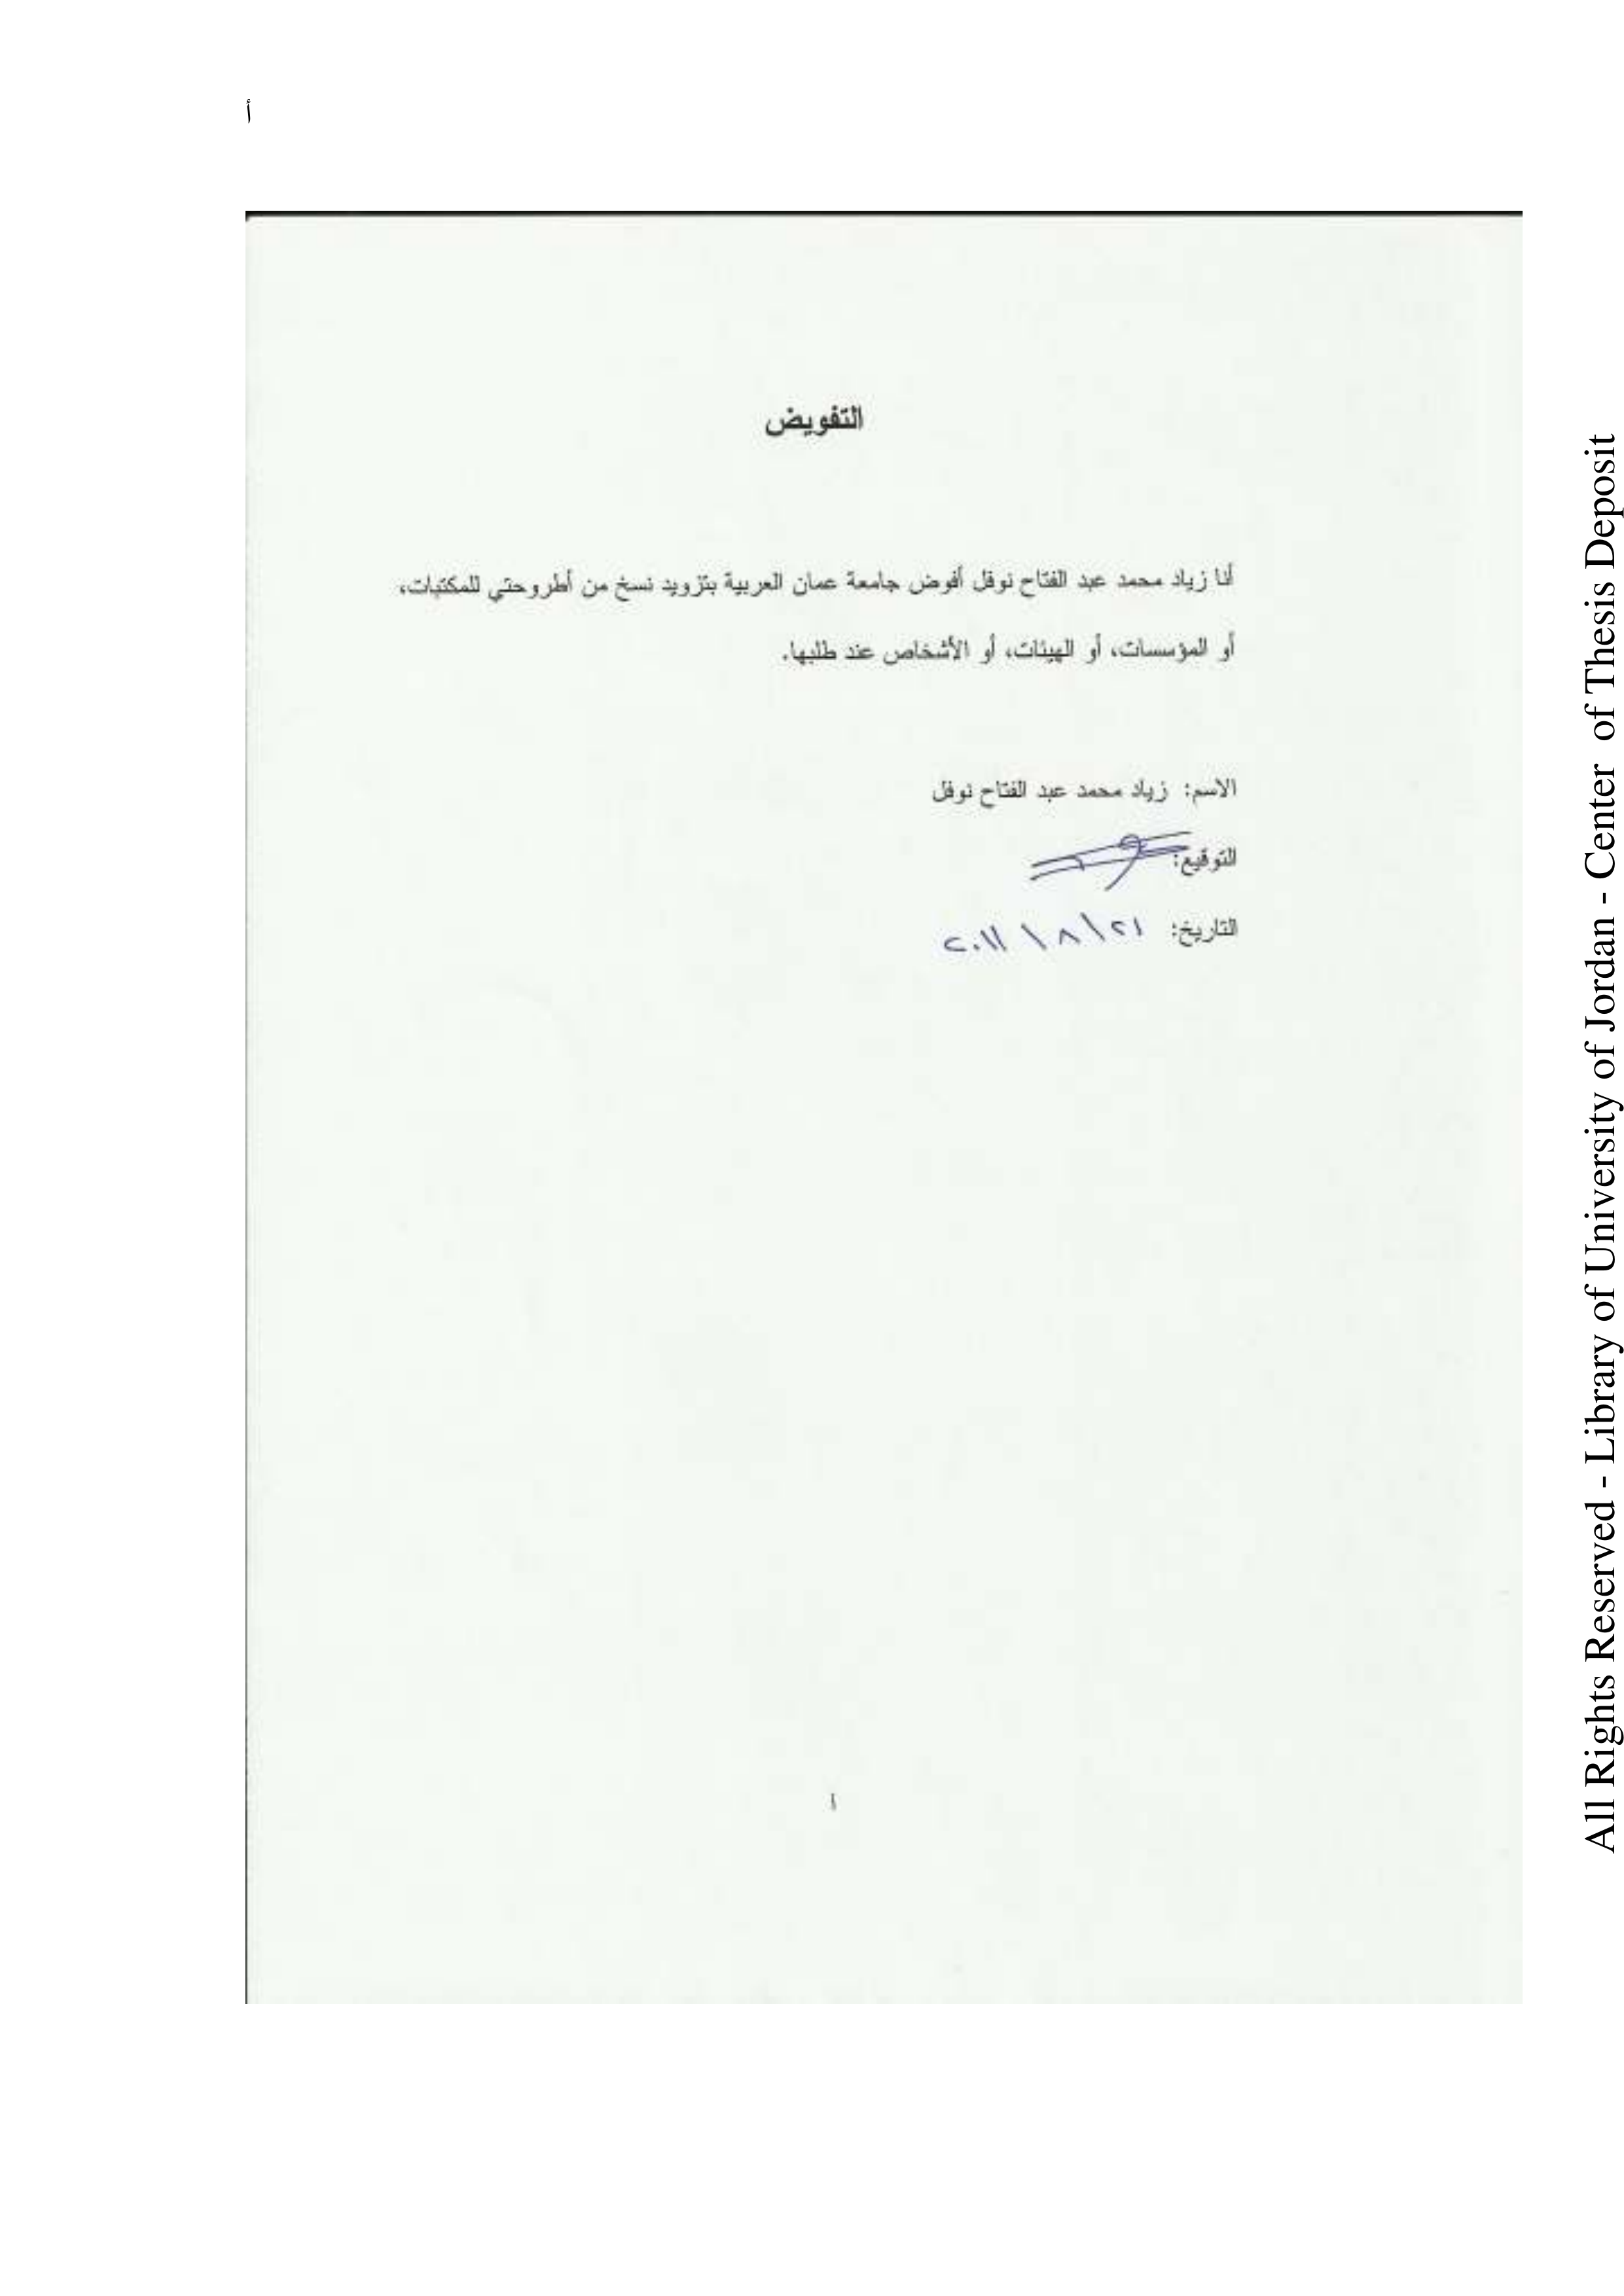 أ
التفويض
أنا زياد محمد عبد الفتاح نوفل أفوض جامعة عمان العربية بتزويد نسخ من أطروحتي للمكتبات،
أو المؤسسات، أو الهيئات، أو الأشخاص عند طلبها.
الاسم: زياد محمد عبد الفتاح نوفل
التوقيع:
التاريخ: ٢١ \ ٨ \ ٢٠١١
أ
All Rights Reserved - Library of University of Jordan - Center of Thesis Deposit